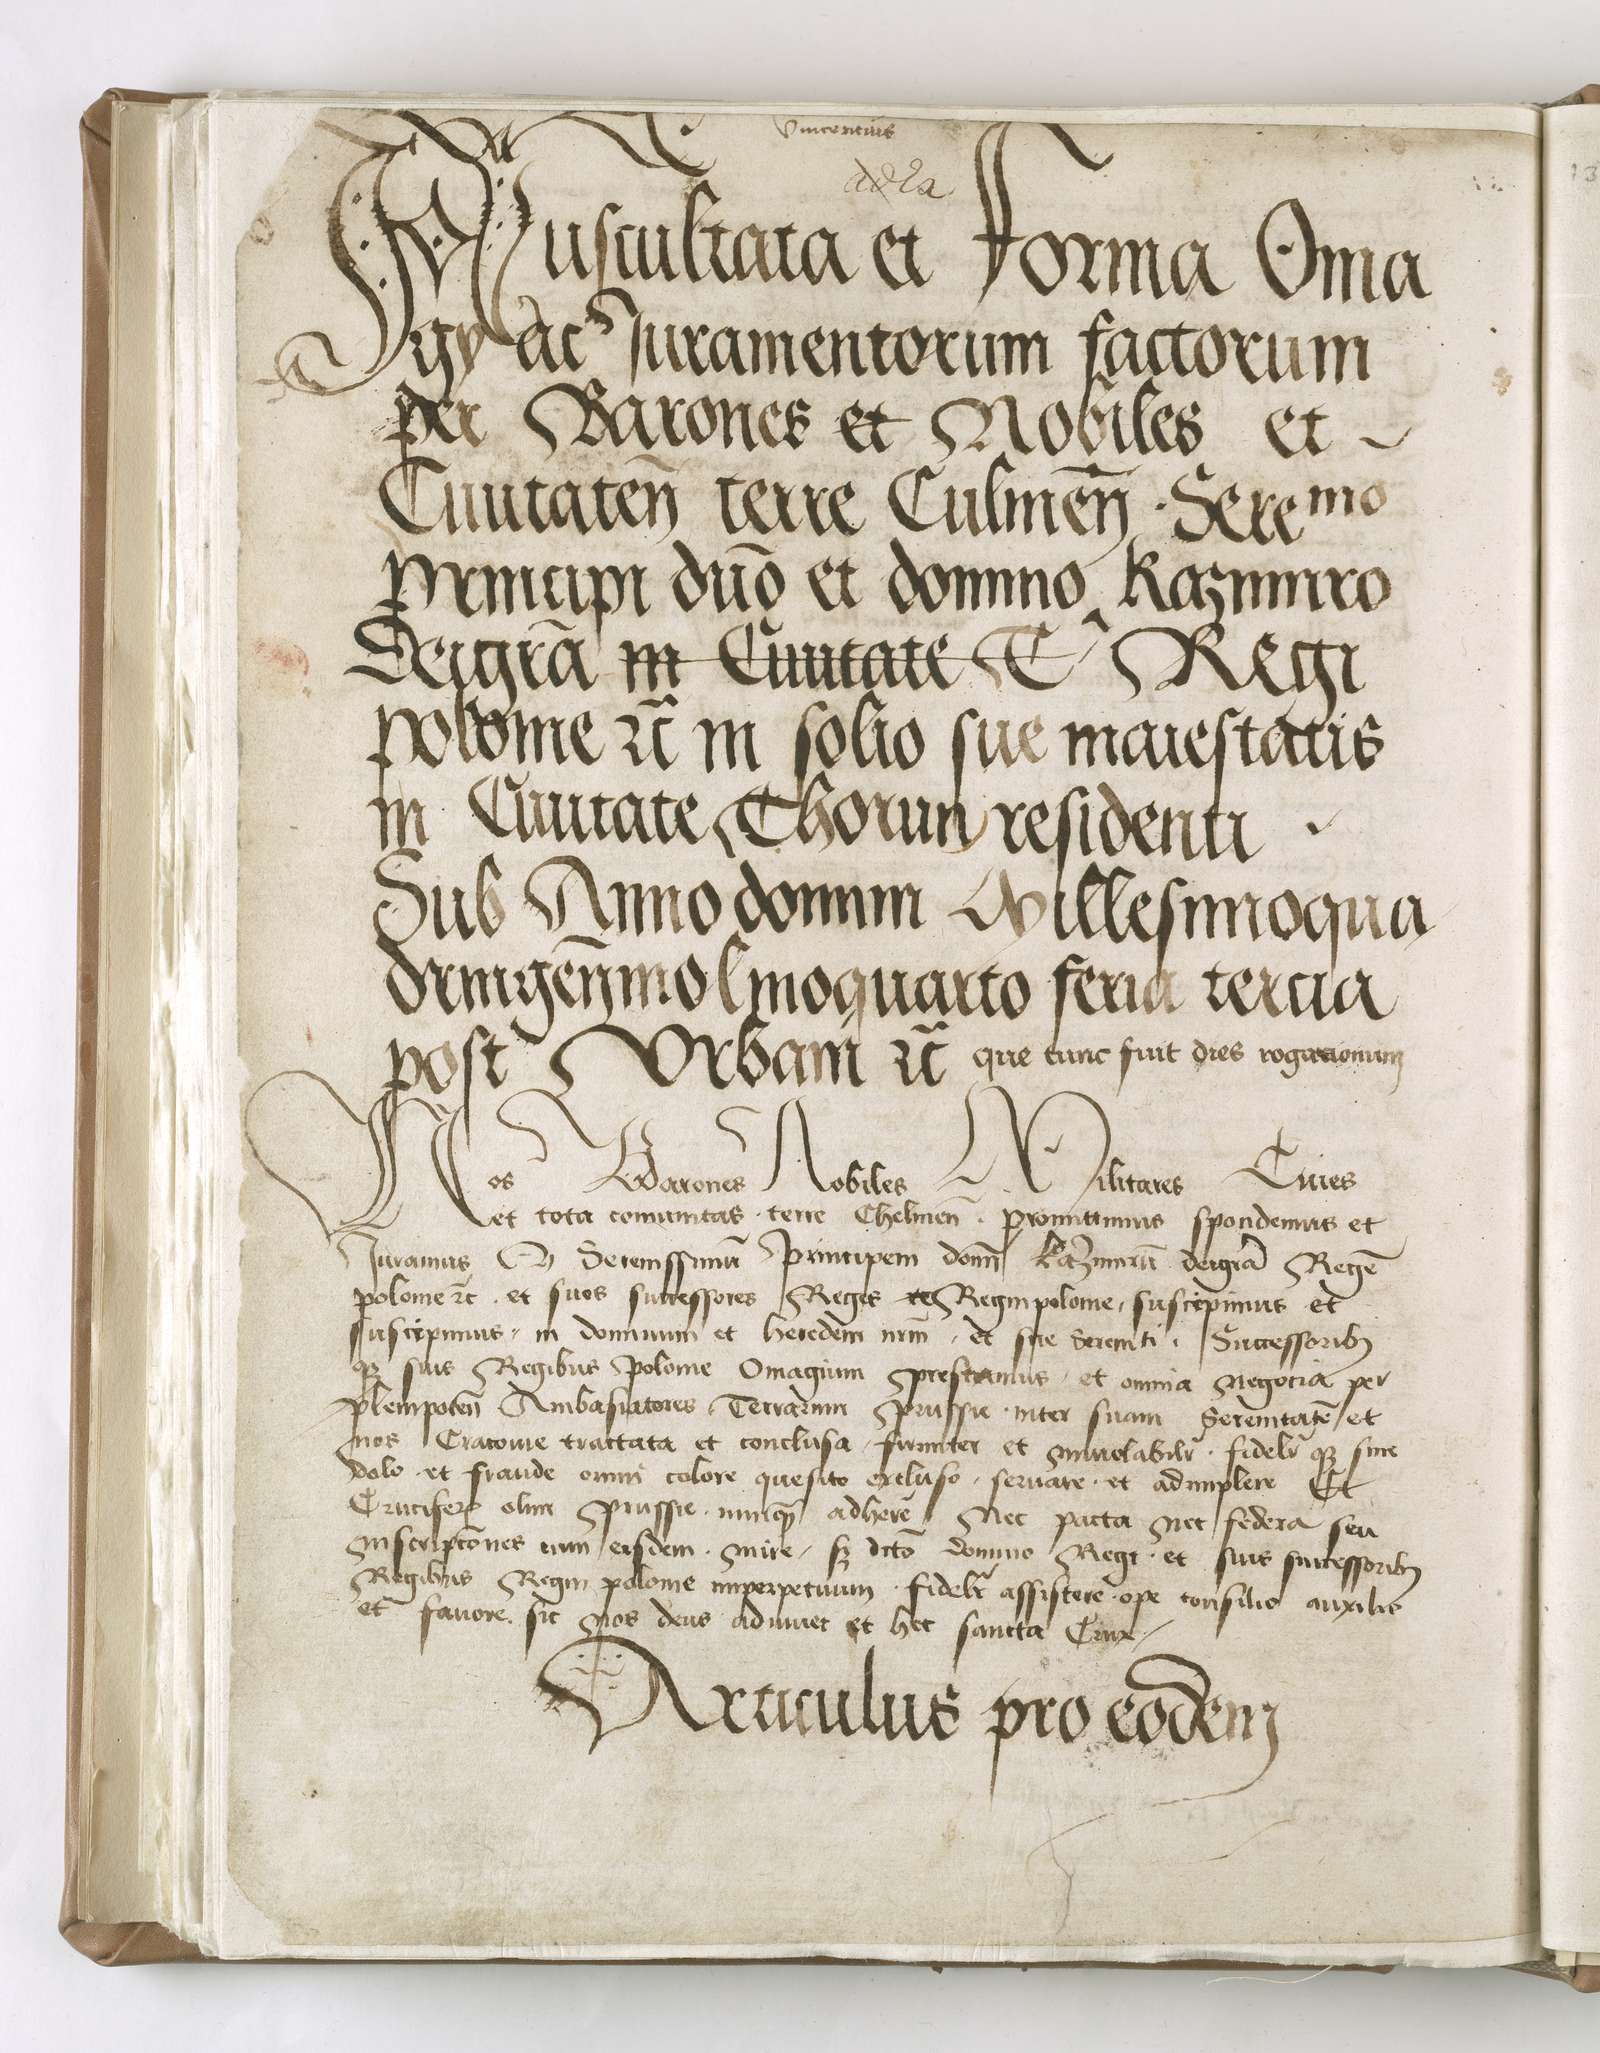 Vincentius
Auscultata et Forma Oma
gy ac Juramentorum factorum
per Barones et Nobiles et
Civitateñ terre Culmeñ Sere mo
principi duo et domino Kazimiro
Deigrã in Civitate T Regi
polonie rc̃ in solio sue maiestatis
in Civitate Thorun residenti
Sub Anno domini Millesimoqua
dringeñmo lmoquarto feria tercia
post Urbani rc̃ que tunc fuit dies rogacionum
Nos Barones Nobiles Militares Cives
et tota comunitas terre Chelmeñ promittimus spondemus et
Juramus Serenissimũ Principem domñ Kazimirũ deigrã Regẽ
polonie rc̃ et suos successores Reges Regni polonie, suscipimus et
suscepimus, in dominum et heredem nrm̃, et sue Sereniti Successoribꝫ
qꝫ suis Regibus Polonie Omagium prestamus, et omnia negocia per
plenipoteñ Ambasiatores Terrarum Prussie inter suam Serenitatẽ et
nos Cracovie tractata et conclusa, firmiter et inviolabilr̃ fidelr̃ qꝫ sine
dolo et fraude omni colore quesito excluso, servare et adimplere Et
Cruciferis olim Prussie nunqȝ adherẽ Nec pacta nec federa seu
Inscripcõnes cum eisdem inire, sꝫ dictõ domino Regi et suis successoribꝫ
Regibus Regni polonie imperpetuum fidelr̃ assistere ope consilio auxilio
et favore, sic nos deus adiuvet et hec sancta Crux
Articulus pro eodem